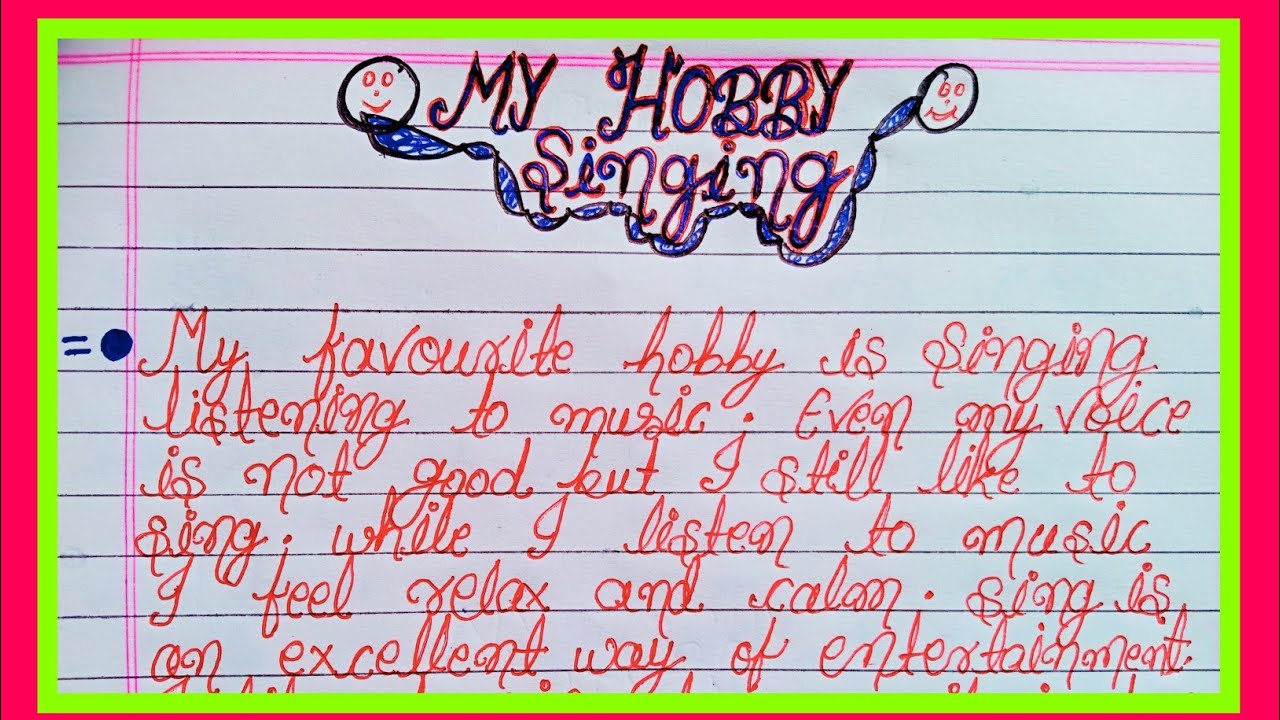 MY HOBBY
Singing
= My favourite hobby is singing
listening to music. Even my voice
is not good but I still like to
sing. while I listen to music
I feel relax and calm. sing is
an excellent way of entertainment.